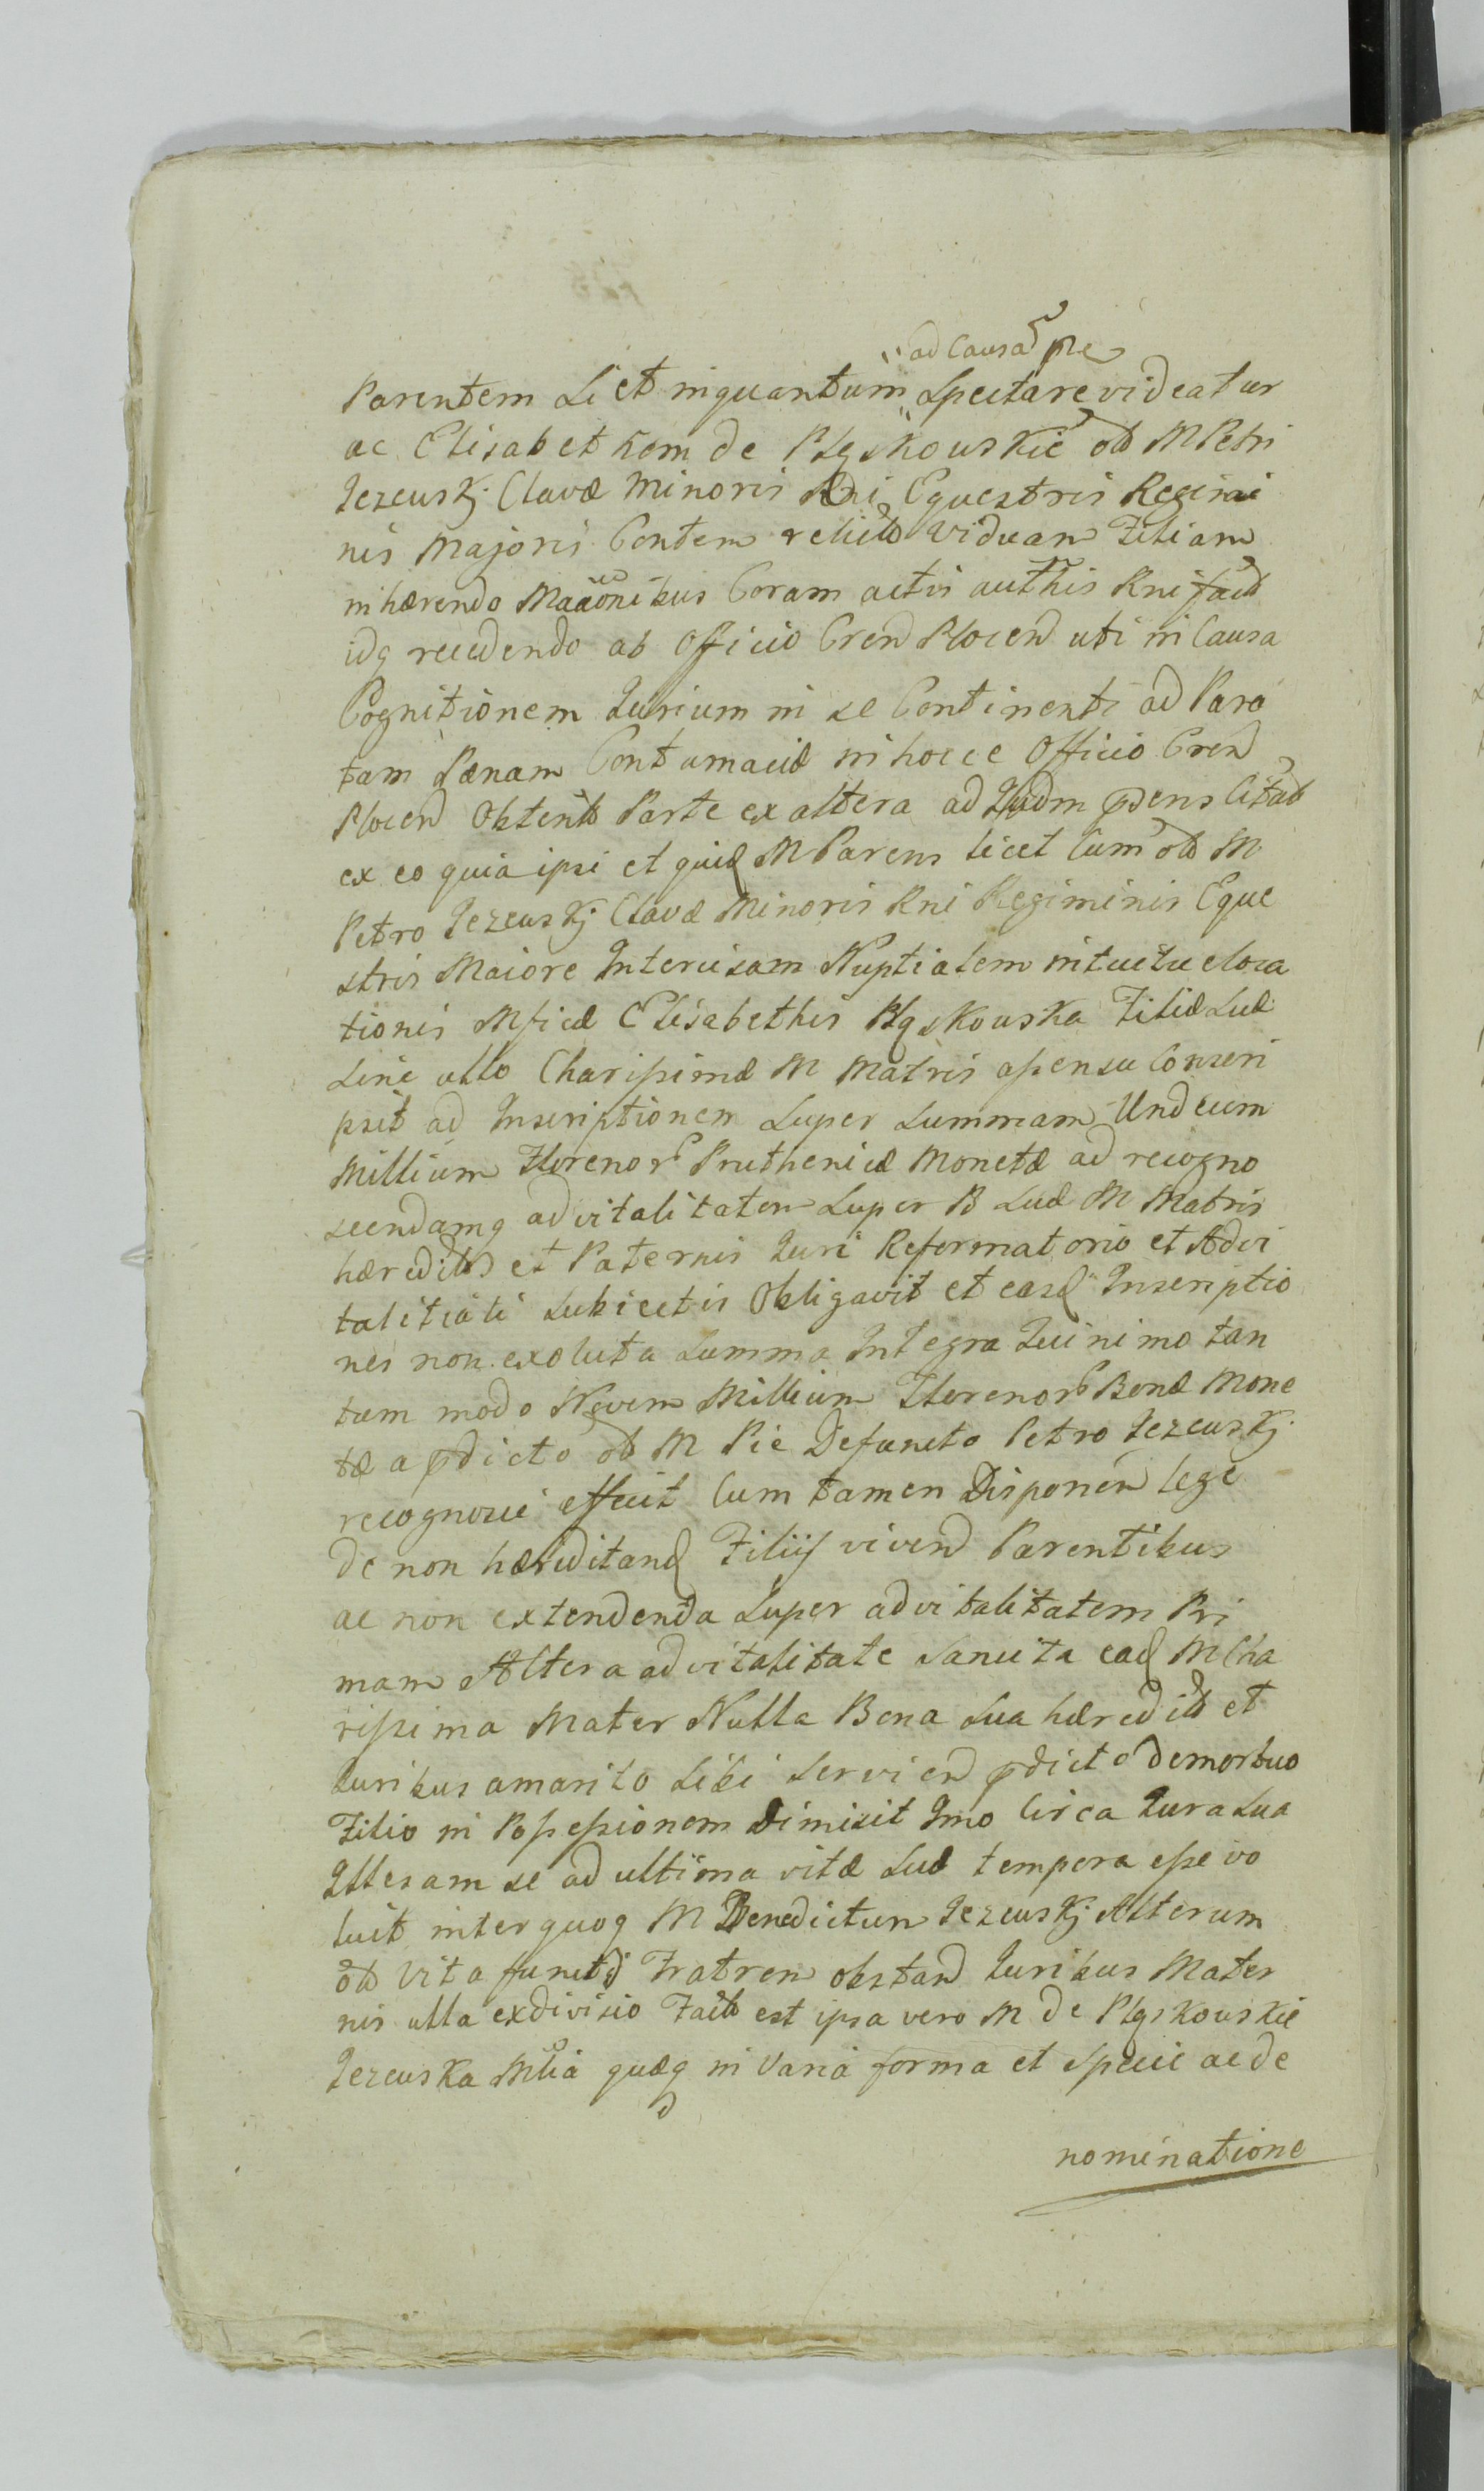 ad Causã pñe
Parentem Si et inquantum Spectare videatur
ac Elisabetham de Pląskowskie olb M Petri
Jezewskj Clavæ Minoris Rni Equestris Regimi
nis Majoris Contem relictb viduam Filiam
inhærendo Maãonibus Coram actis authis Rni factb
idq recedendo ab Officio Cren Plocen uti in Causa
Cognitionem Jurium in se Continenti ad Para
tam Pænam Contumaciæ in hocce Officio Cren
Plocen Obtentb Parte ex altera ad Judm pñsens Citatb
ex eo quia ipsi et quid M Parens licet Cum olb M
Petro Jezewskj Clavæ Minoris Rni Regiminis Eque
stris Maiore Intercisam Nuptialem intuitu eloca
tionis Mficæ Elisabethis Pląskowska Filiæ Suæ
Sine ullo Charissimæ M Matris assensu Conscri
psit ad Inscriptionem Super Summam Undecim
Millium Florenor Pruthenicæ Monetæ ad recogno
scendamq advitalitatem Super B Suæ M Matris
hæreditb et Paternis Juri Reformatorio et Advi
talitiali Subiectis Obligavit et easd Inscriptio
nes non exoluta Summa Integra Quinimo tan
tum modo Novem Millium Florenor Bonæ Mone
tæ a pdicto olb M Pie Defuncto Petro Jezewskj
recognosci effecit Cum tamen Disponen lege
de non hæreditand Filiis viven Parentibus
ac non extendenda Super advitalitatem Pri
mam Altera advitalitate Sancita ead M Cha
rissima Mater Nulla Bona Sua hæreditb et
Juribus a marito Sibi Servien pdicto demortuo
Filio in Possessionem Dimisit Imo Circa Jura Sua
Illesam se ad ultima vitæ Suæ tempora esse vo
luit inter quoq M Benedictum Jezewskj Alterum
olb Vita functi Fratrem obstan Juribus Mater
nis ulla exdivisio Factb est ipsa vero M de Pląskowskie
Jezewska Mlia quæq in Varia forma et Specie ac de
nominatione